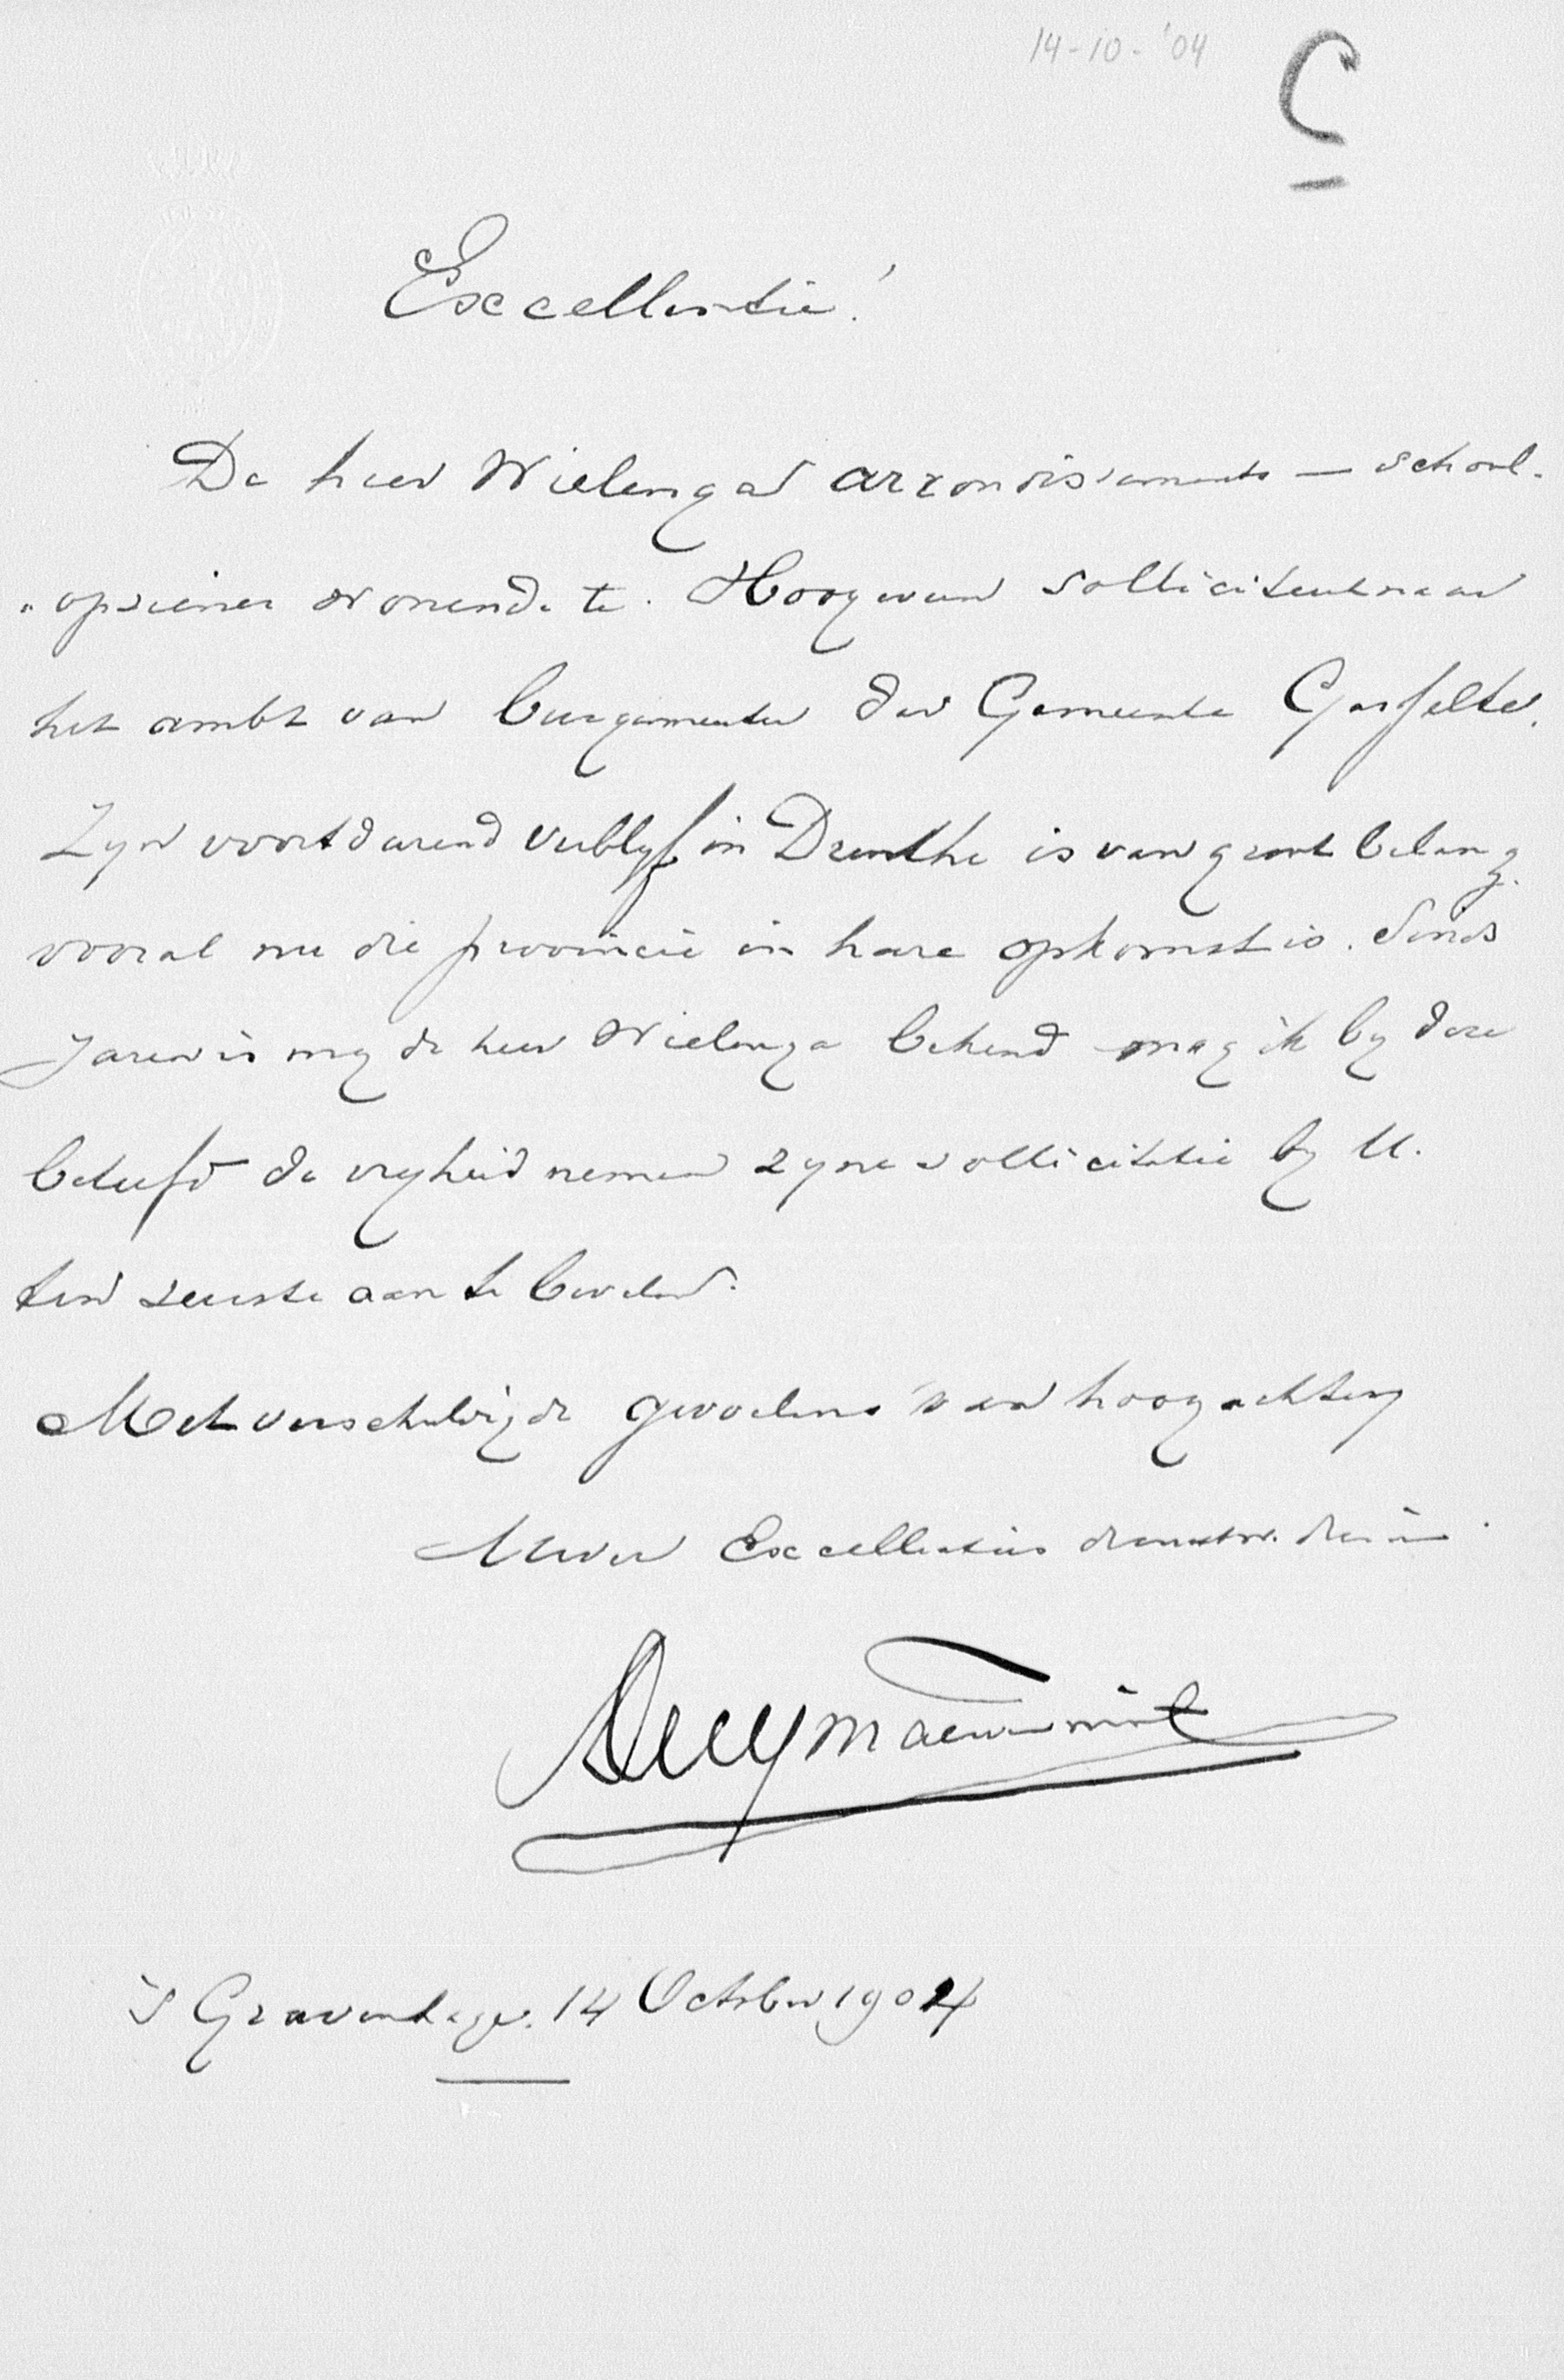 14-10-'04
C
Excellentie!
De heer Wielenga arrondissements — school-
„opziener wonende te Hoogeveen solliciteert naar
het ambt van burgemeester der Gemeente Gasselte.
Zyn voortdurend verblyf in Drenthe is van groot belang.
vooral nu die provincie in hare opkomst is. Sinds
Jaren is my de heer Wielenga bekend mag ik by deze
beleefd de vryheid nemen zyne sollicitatie by U.
ten zeerste aan te bevelen.
Met verschuldigde gevoelens van hoogachting
Uwer Excellenties dienstw. dienaar
's Gravenhage. 14 October 1904